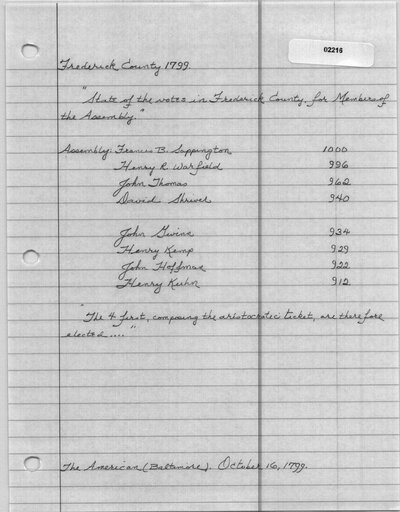 02216
Frederick County 1799.
"State of the votes in Frederick County, for Members of
the Assembly."
Assembly: Francis B. Sappington 1000
Henry R. Warfield 996
John Thomas 962
David Shriver 940
John Gwinn 934
Henry Kemp 929
John Hoffman 922
Henry Kuhn 912
"The 4 first, composing the aristocratic ticket, are therefore
elected ...."
The American (Baltimore). October 16, 1799.